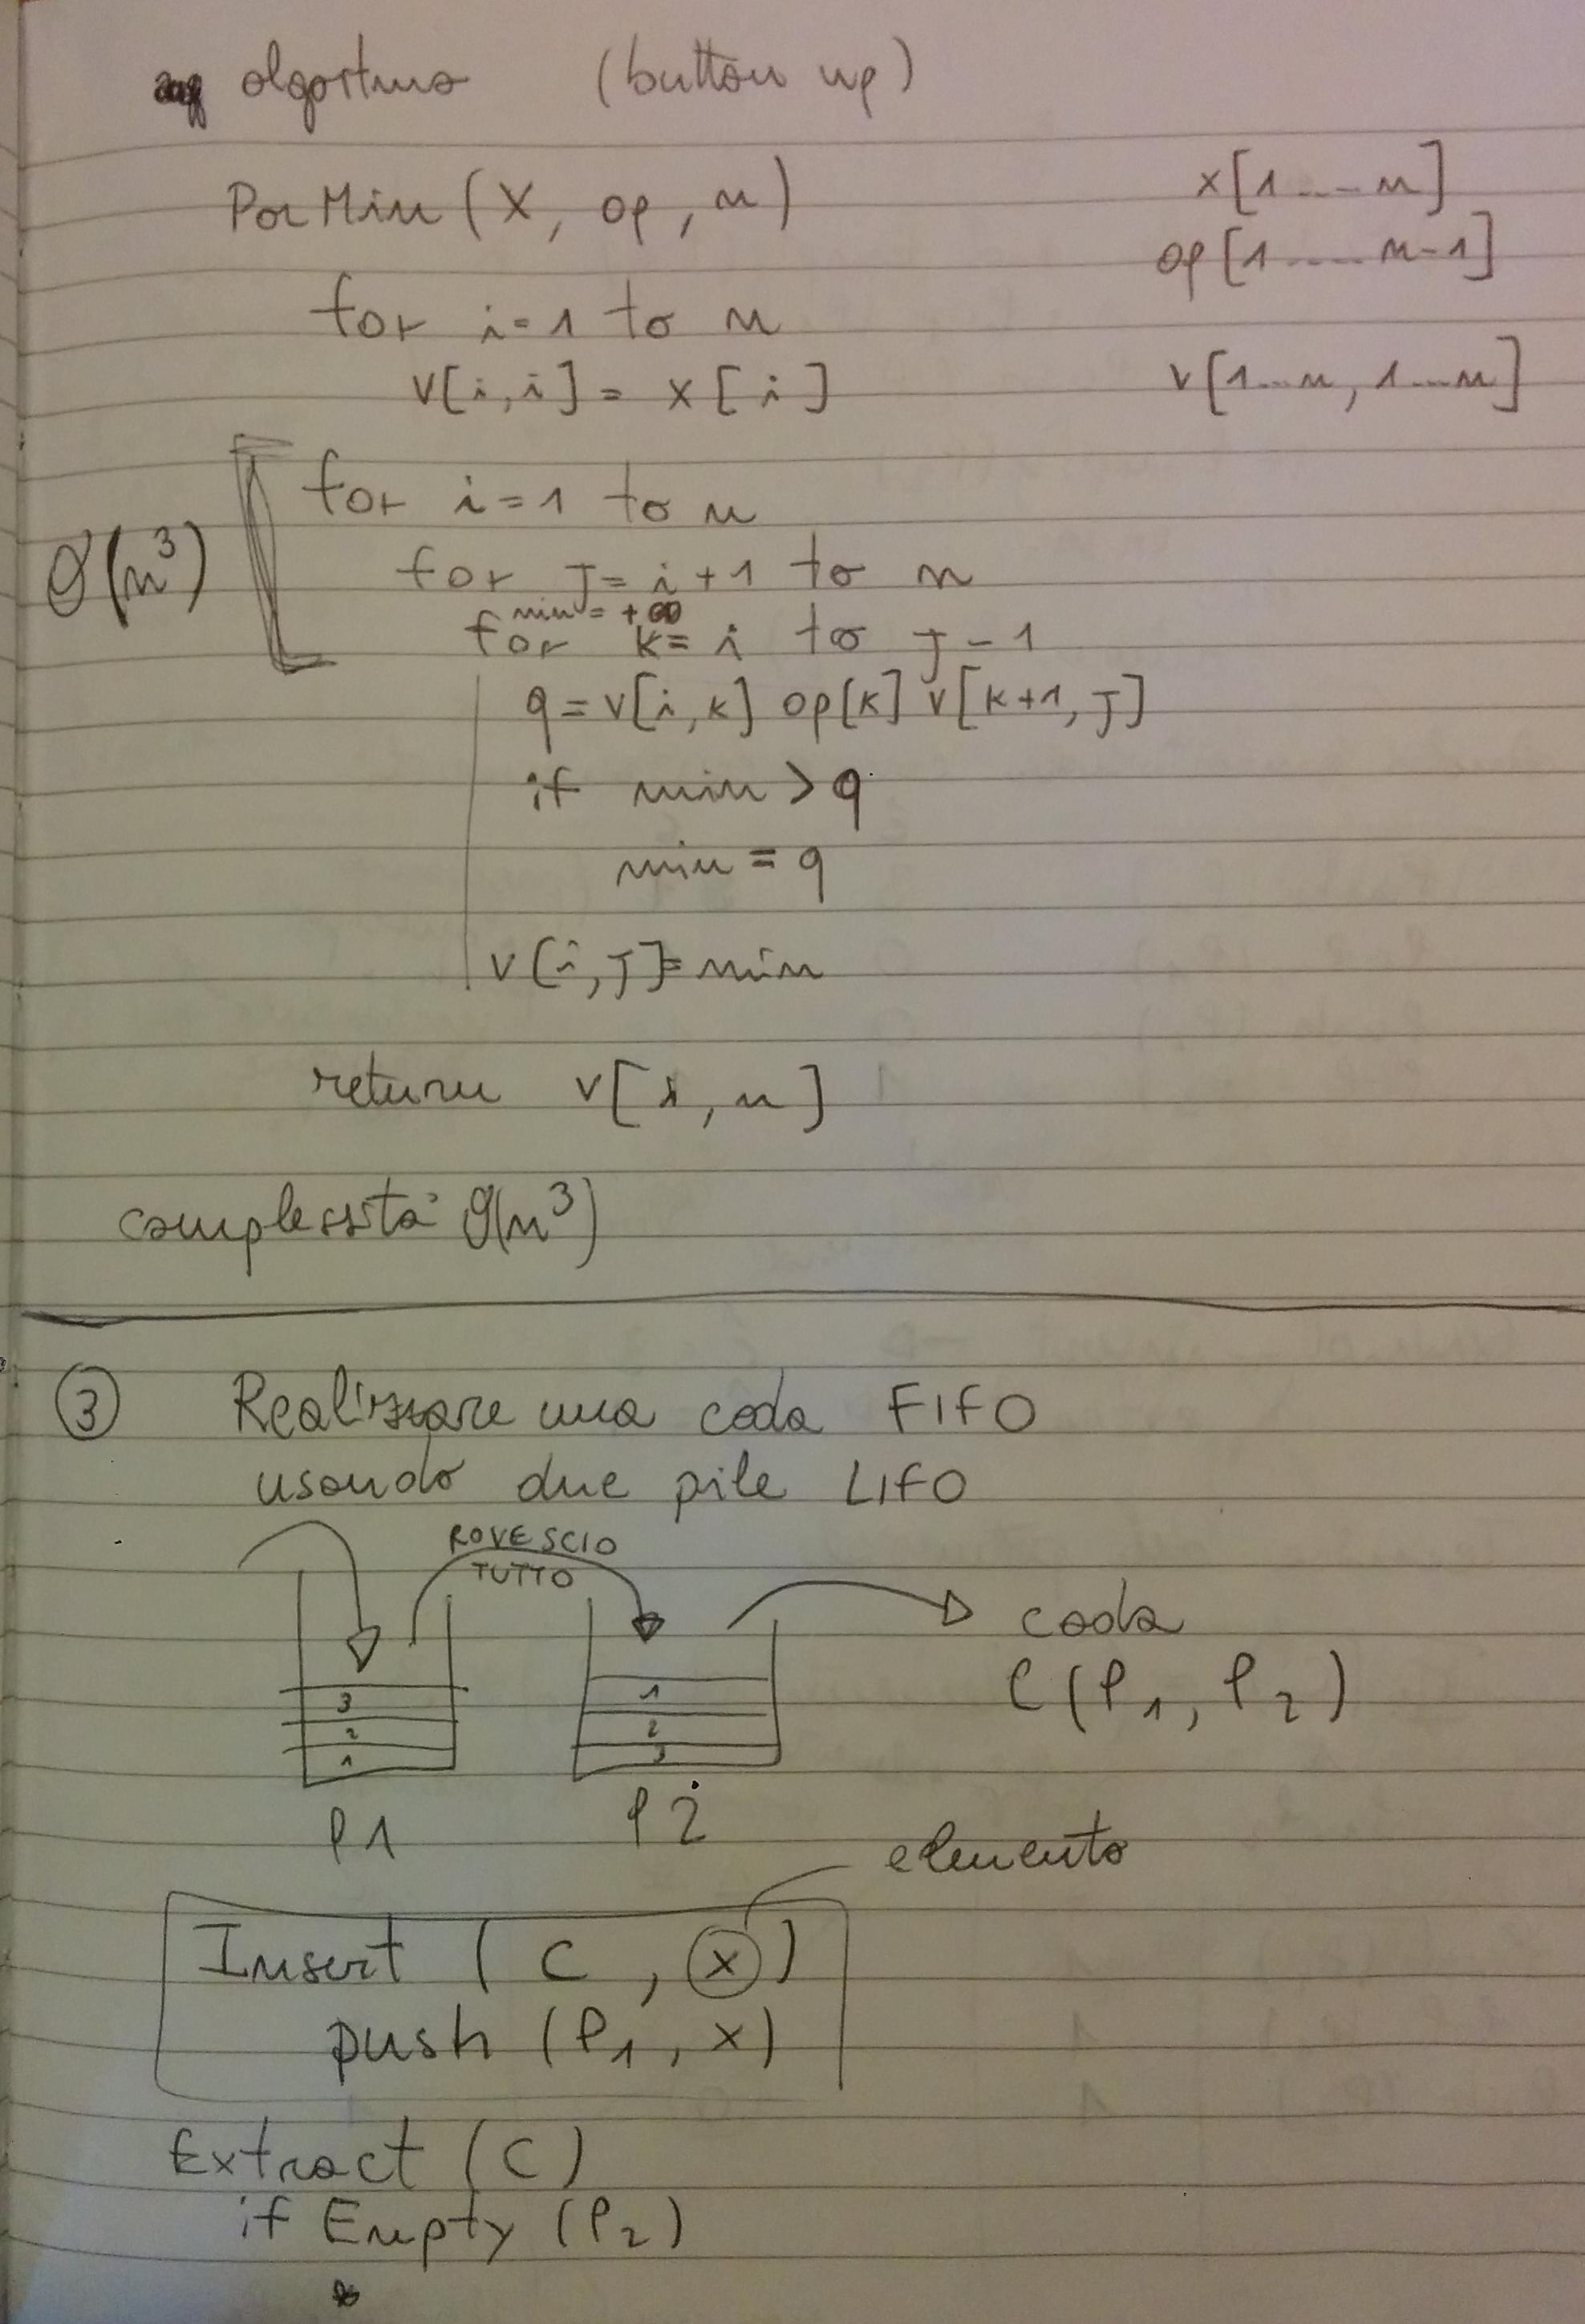 algoritmo (button up)
ParMin (X, op, n)
x[1....n]
op[1.....n-1]
for i=1 to n
v[i,i] = x[i]
v[1...n, 1...n]
for i=1 to n
for J= i+1 to n
min = +∞
for k= i to J-1
Θ(n³)
q = v[i,k] op[k] v[k+1, J]
if min > q
min = q
v[i, J] = min
return v[1, n]
complessità Θ(n³)
③ Realizzare una coda FIFO
usando due pile LIFO
ROVESCIO
TUTTO
coda
C(P₁, P₂)
3
2
1
1
2
3
P1
P2
elemento
Insert (C, x)
push (P₁, x)
Extract (C)
if Empty (P₂)